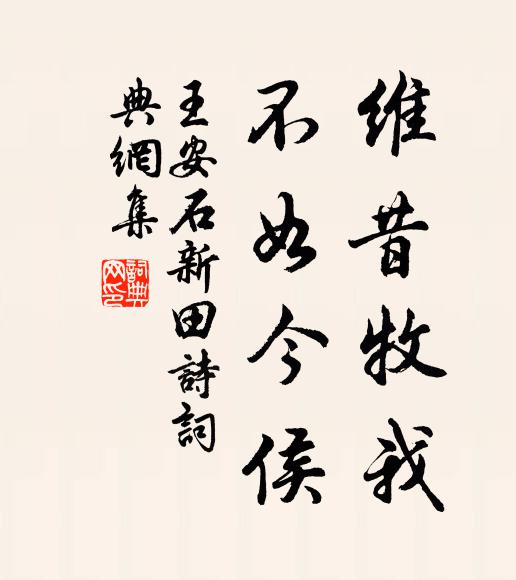 維昔牧我
不如今侯
王安石新田詩詞
典網集
詞典網印